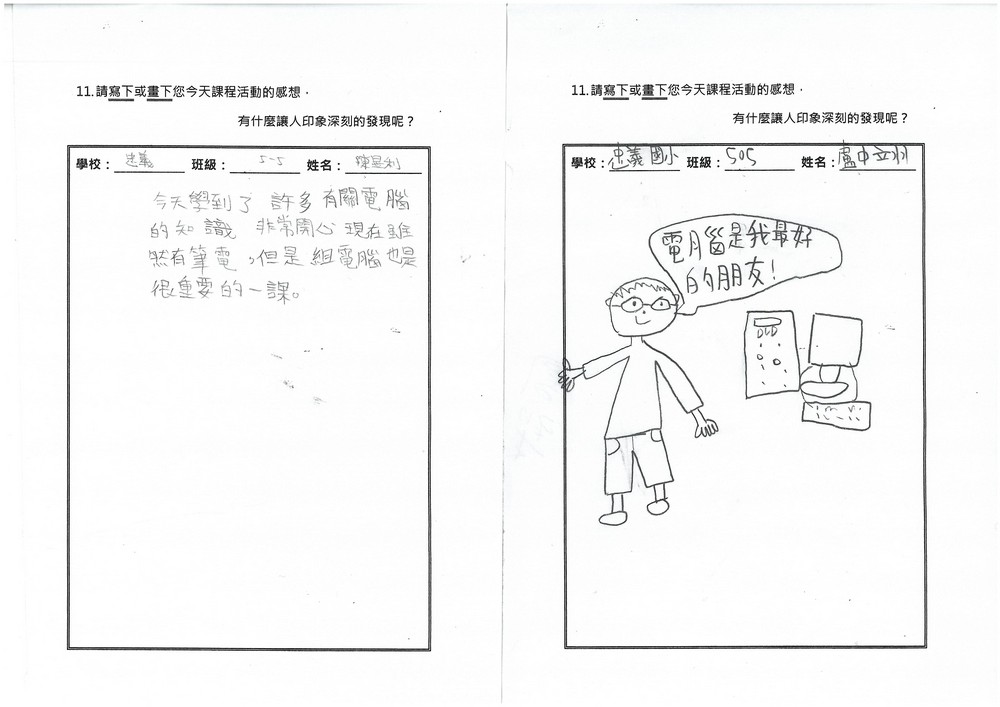 11.請寫下或畫下您今天課程活動的感想．
有什麼讓人印象深刻的發現呢？
學校：忠義 班級：5-5 姓名：
今天學到了 許多有關電腦
的知識 非常開心 現在雖
然有筆電，但是組電腦也是
很重要的一課。
11.請寫下或畫下您今天課程活動的感想．
有什麼讓人印象深刻的發現呢？
學校：忠義國小 班級：505 姓名：
電腦是我最好
的朋友！
DVD